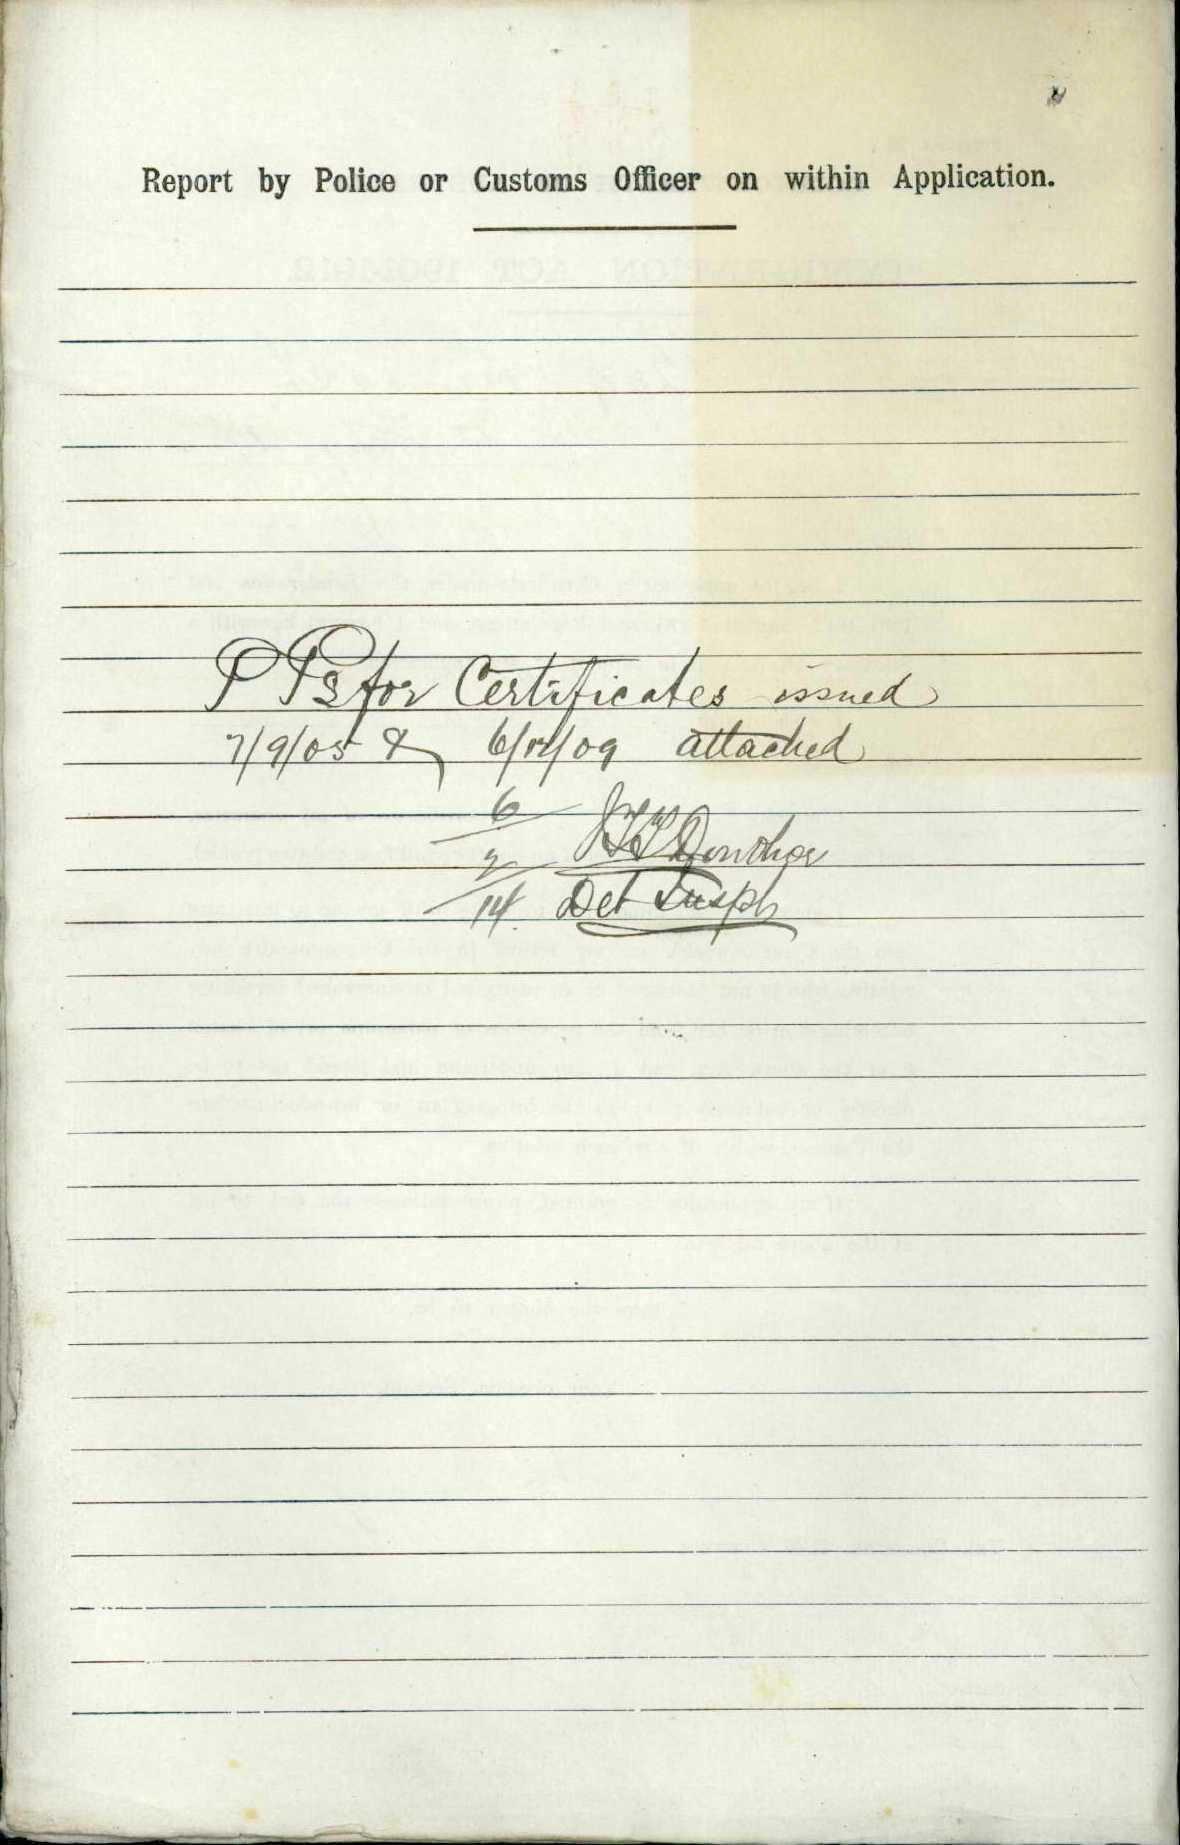 Report by Police or Customs Officer on within Application.
P Ps for Certificates issued
7/9/05 & 6/12/09 attached
6/2/14.
Det Inspr